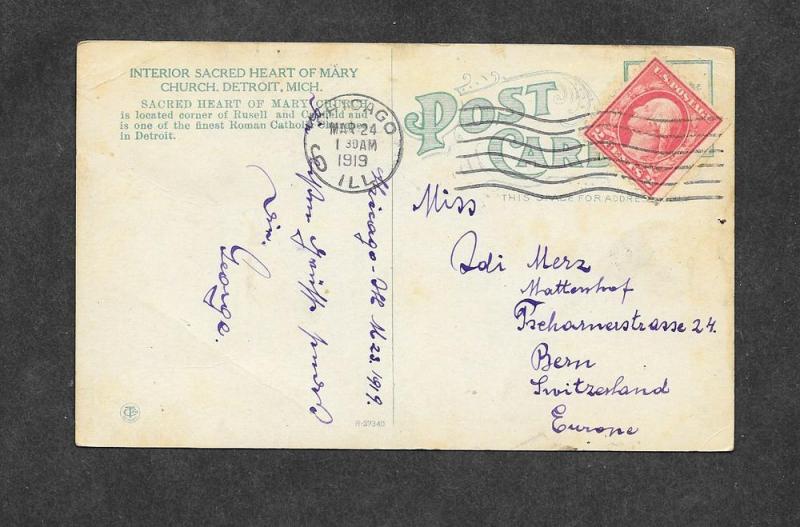 INTERIOR SACRED HEART OF MARY
CHURCH, DETROIT, MICH.
SACRED HEART OF MARY CHURCH
is located corner of Rusell and and
is one of the finest Roman Catholic Churches
in Detroit.
CHICAGO
MAR 24
1 30 AM
1919
ILL.
POST
CARD
THIS SPACE FOR ADDRESS
U.S. POSTAGE
2 CENTS 2
Chicago - Ill M 23. 1919.
Grüsse sendet
Dir.
George.
Miss
Merz
Mattenhof
Tscharnerstrasse 24.
Bern
Switzerland
Europe
R-27340